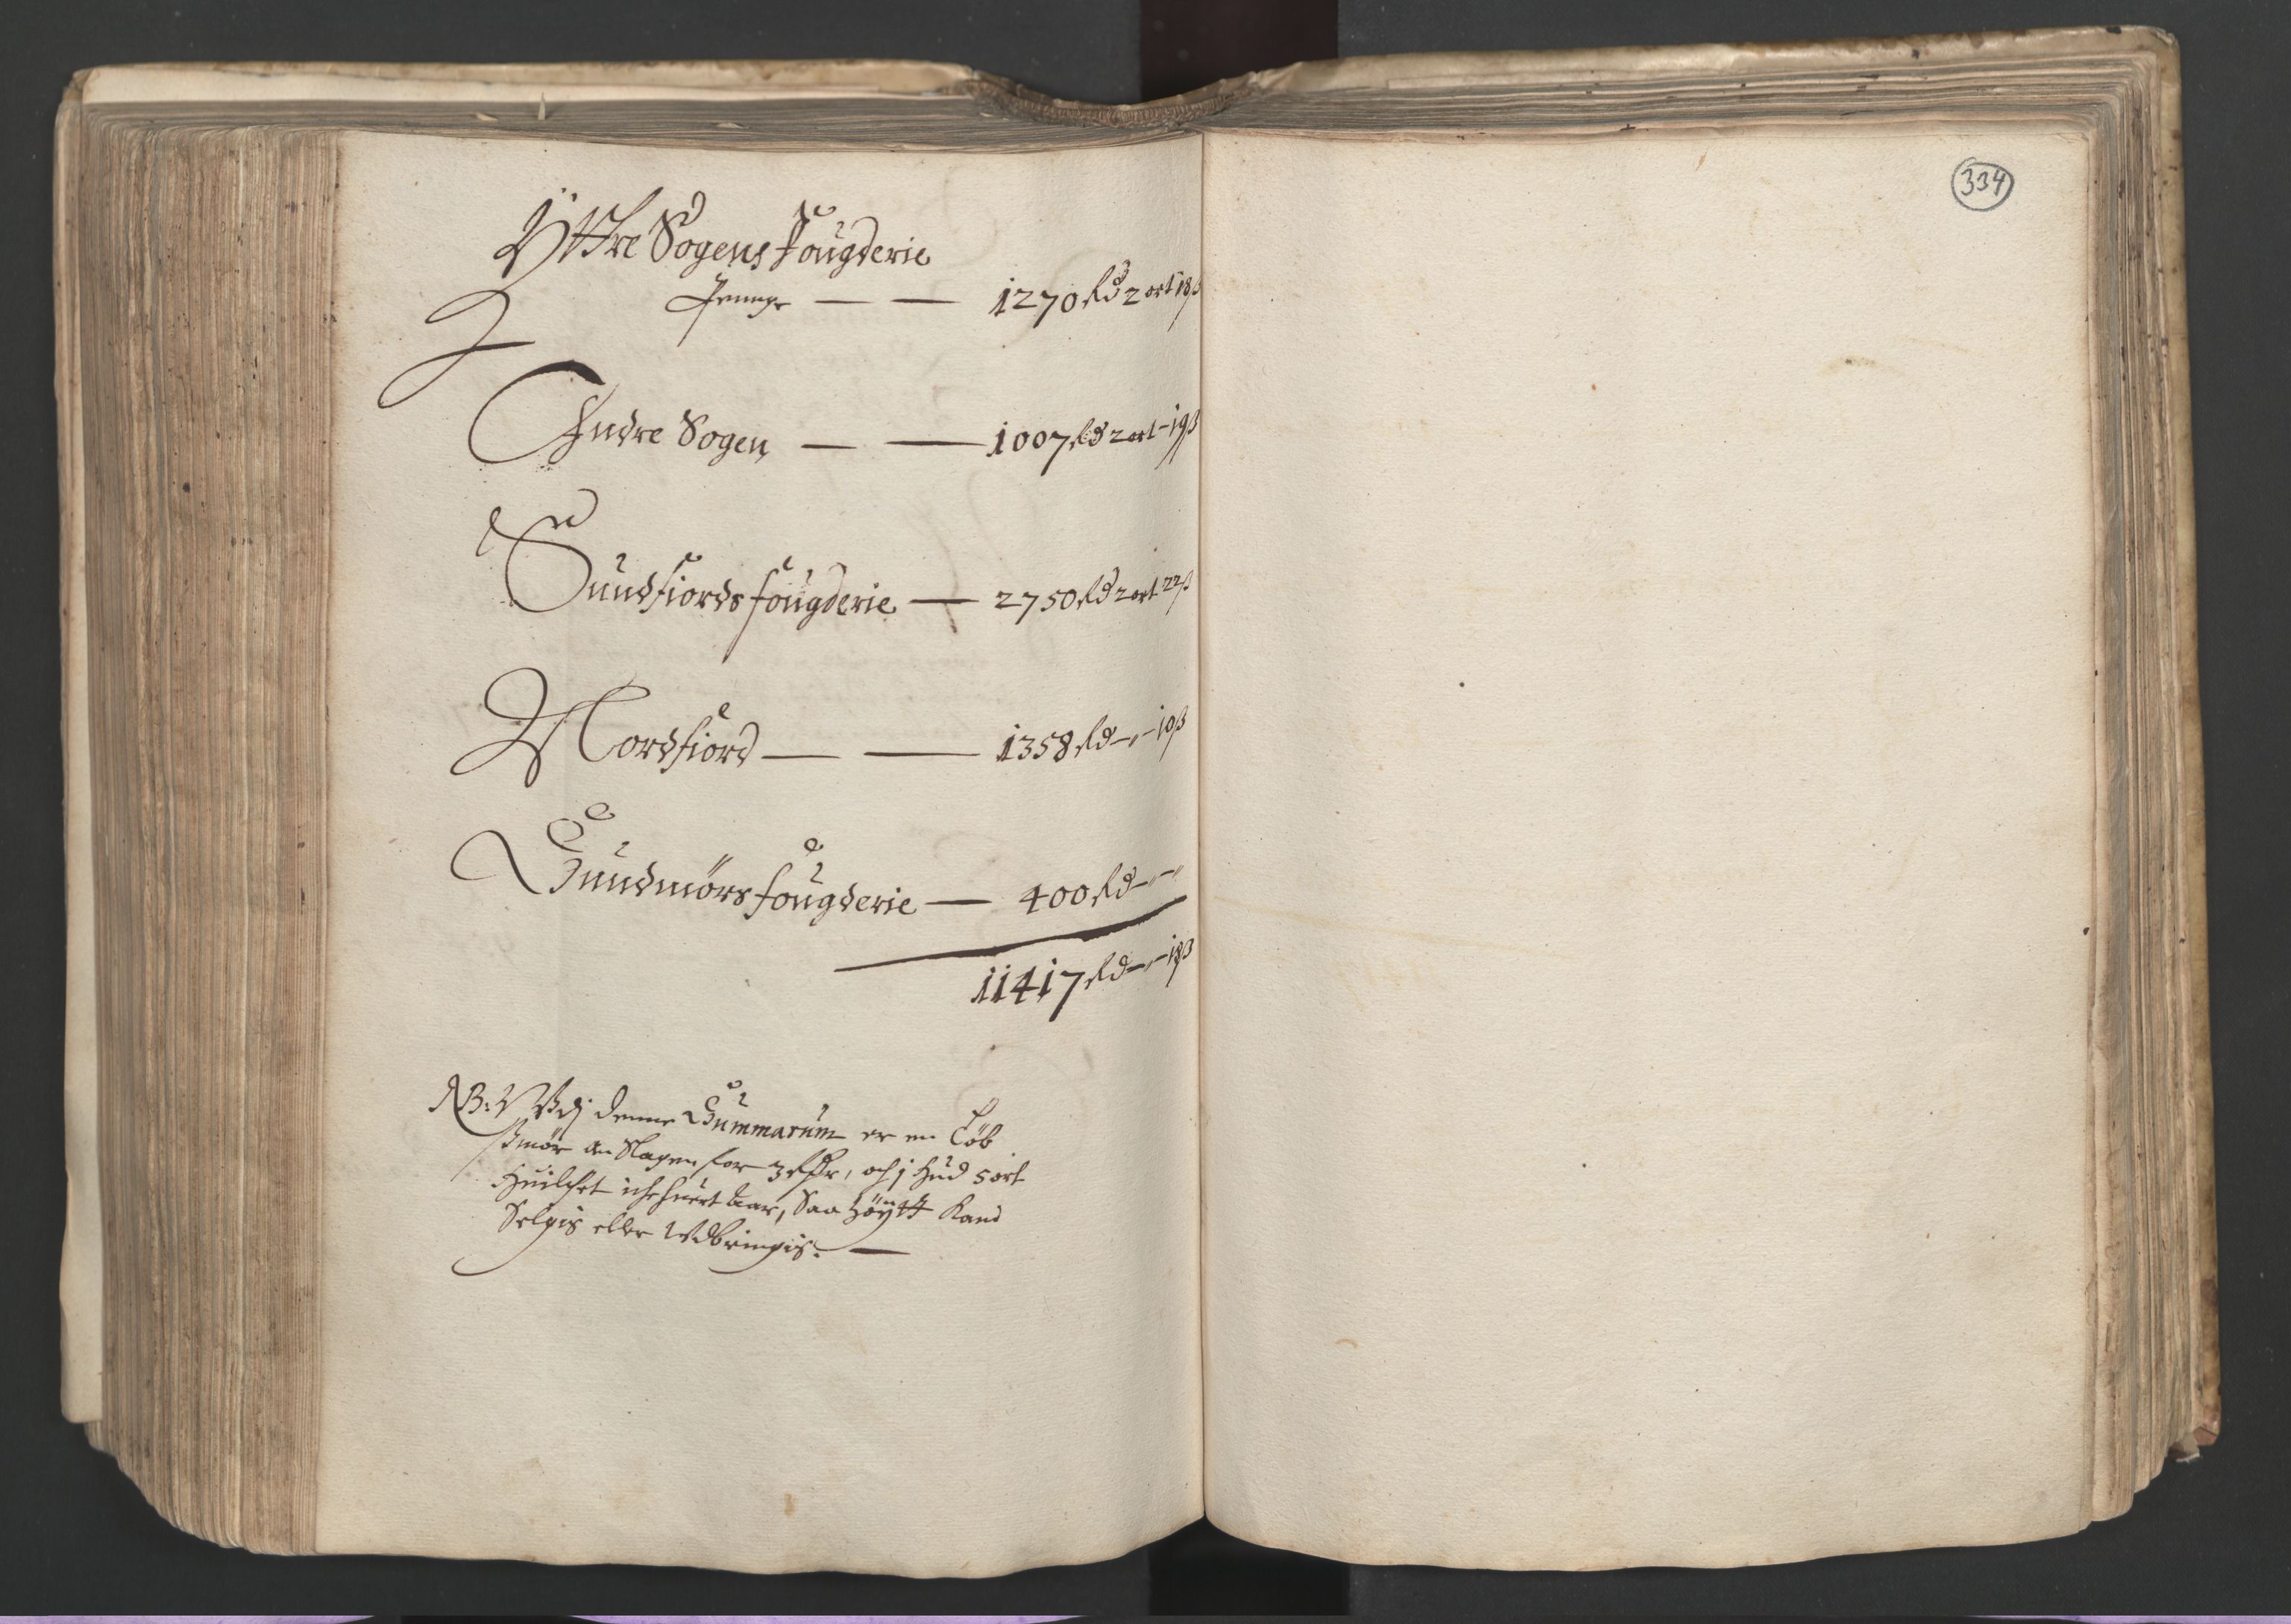 Yttre Sogens Fougderie
Penge — — 1270 Rd 2 ort 18 ß
Indre Sogen — — 1007 Rd 2 ort - 19 ß
Sundfiords fougderie — 2750 Rd 2 ort 22 ß
Nordfiord — — 1358 Rd - „ - 10 ß
Sundmørs fougderie — 400 Rd - „ - „
11417 Rd - „ - 18 ß
NB: Udj denne Summarum er en Løb
Smør an Slagen for 3 Rdr, och j Hud 5 ort
Huilchet iche huert aar, Saa høytt Kand
Selgis eller Udbringis. —
334